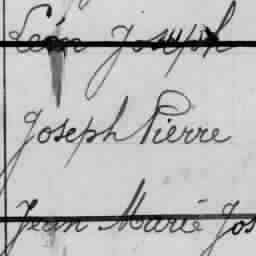 Léon Joseph
Joseph Pierre
Jean Marie Jos